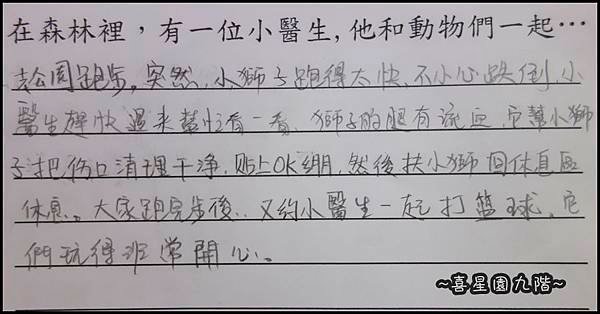 在森林裡，有一位小醫生，他和動物們一起…
公園跑步，突然，小獅子跑得太快，不小心跌倒，小
醫生趕快過來幫忙看一看，獅子的腿有流血，它幫小獅
子把伤口清理干净，貼上OK绷，然後扶小獅回休息區
休息。大家跑完步後，又约小醫生一起打籃球，它
們玩得班常開心。
~喜星園九階~